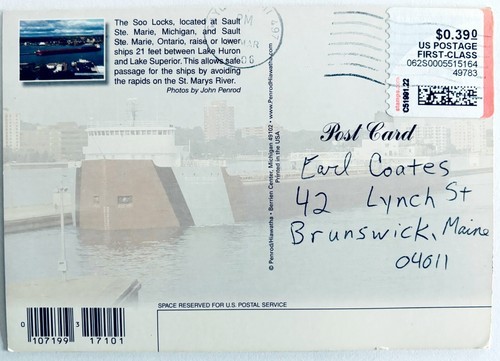 The Soo Locks, located at Sault
Ste. Marie, Michigan, and Sault
Ste. Marie, Ontario, raise or lower
ships 21 feet between Lake Huron
and Lake Superior. This allows safe
passage for the ships by avoiding
the rapids on the St. Marys River.
Photos by John Penrod
PM
$0.390
US POSTAGE
FIRST-CLASS
062S0005515164
49783
stamps.com
CS1991.22
© Penrod/Hiawatha • Berrien Center, Michigan 49102 • www.Penrod/Hiawatha.com
Printed in the USA
Post Card
Earl Coates
42 Lynch St
Brunswick, Maine
04011
SPACE RESERVED FOR U.S. POSTAL SERVICE
0 107199 17101 3